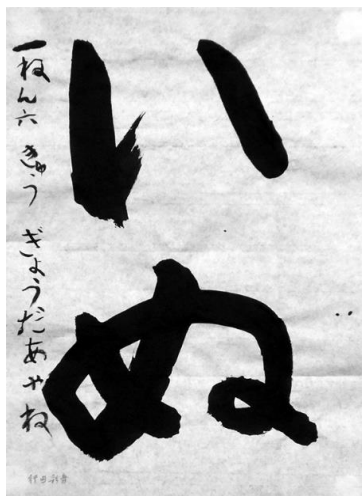 いぬ
一ねん六きゅう ぎょうだあやね